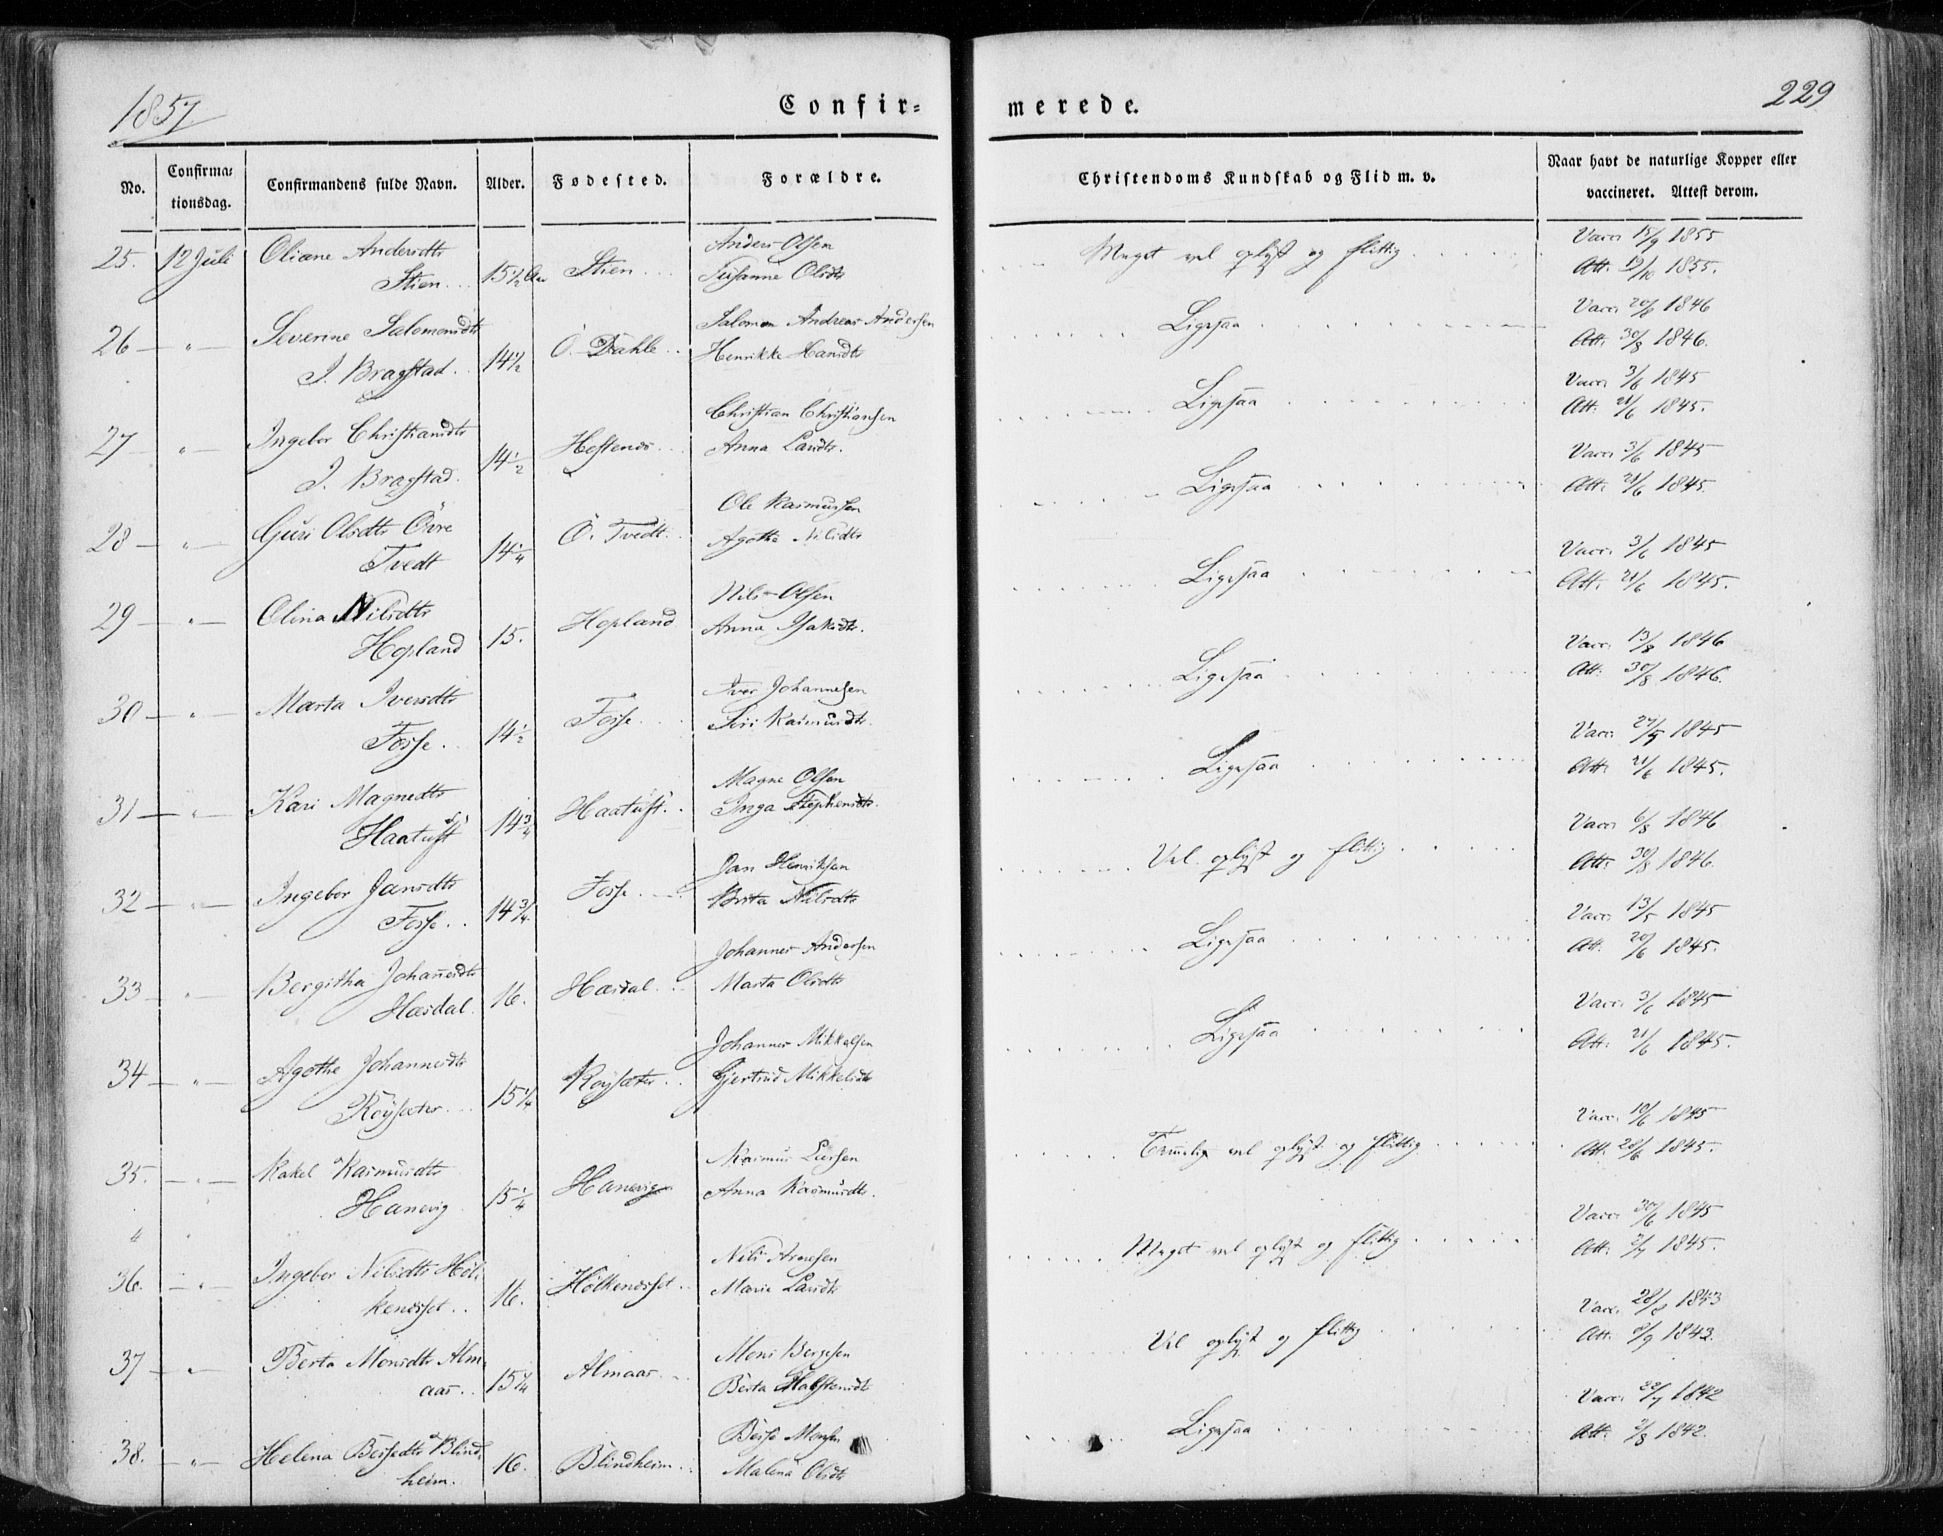 1857.
Confir=
merede.
229
No.
Confirma=
tionsdag.
Confirmandens fulde Navn.
Alder.
Fødested.
Forældre.
Christendoms Kundskab og Flid m. v.
Naar havt de naturlige Kopper eller
vaccineret. Attest derom.
25. 12 Juli Oliane Andersdtr Anders Olsen Meget vel oplyst og flittig Vacc. 15/9 1855
Stien 15 1/2 Stien Olsdtr Att. 19/10 1855.
26 — " — Severine Salomonsdtr Salomon Andreas Andersen Ligesaa Vacc. 1846
I. Bragstad. 14 1/2 Ö. Dahle Henrikke Hansdtr Att. 30/8 1846.
27 — " — Ingebor Christiansdtr Christian Christiansen Ligesaa Vacc. 3/6 1845
I. Bragstad. 14 1/2 Hestenes Anna Larsdtr. Att. 21/6 1845.
28 — " — Guri Olsdtr Övre Ole Rasmussen Ligesaa Vacc. 3/6 1845
Tvedt 14 1/4 Ö. Tvedt Agothe Nilsdtr Att. 21/6 1845.
29 — " — Olina Nilsdtr Nils Olsen Ligesaa Vacc. 3/6 1845
Hopland 15. Hopland Anna Isaksdtr. Att. 21/6 1845.
30 — " — Marta Iversdtr Iver Johannesen Ligesaa Vacc. 13/8 1846
Fosse. 14 1/2 Fosse Siri Rasmusdtr. Att. 30/8 1846.
31 — " — Kari Magnedtr Magne Olsen Ligesaa Vacc. 27/5 1845
Haatuft 14 3/4 Haatuft. Inga Stephensdtr. Att. 21/6 1845.
32 — " — Ingebor Jansdtr Jan Henriksen Vel oplyst og flittig Vacc. 6/8 1846
Fosse. 14 3/4 Fosse Brita Nilsdtr Att. 30/8 1846.
33 — " — Bergitha Johanesdtr Johannes Andersen Ligesaa Vacc. 13/5 1845
Hasdal. 16. Hasdal. Marta Olsdtr Att. 20/6 1845.
34 — " — Agothe Johannesdtr Johannes Mikkelsen Ligesaa Vacc. 3/6 1845
Röysæter 15 1/4 Röysæter Gjertrud Mikkelsdtr Att. 21/6 1845.
35. — " — Rakel Rasmusdtr Rasmus Temmelig vel oplyst og flittig Vacc. 10/6 1845
Hanevig 15 1/4 Hanevig Anna Rasmusdtr. Att. 28/6 1845.
36. — " — Ingebor Nilsdtr Höl- Nils Arnesen Meget vel oplyst og flittig Vacc. 30/6 1845
kenesset 16. Hölkenesset Marie Larsdtr Att. 1845.
37 — " — Berta Monsdtr Alm- Mons Vel oplyst og flittig Vacc. 28/8 1843
aas. 15 1/4 Almaas Berta Halstensdtr Att. 1843.
38. — " — Helena Blind- Ligesaa Vacc. 22/7 1842
heim. 16. Blindheim Malena Olsdtr Att. 2/8 1842.